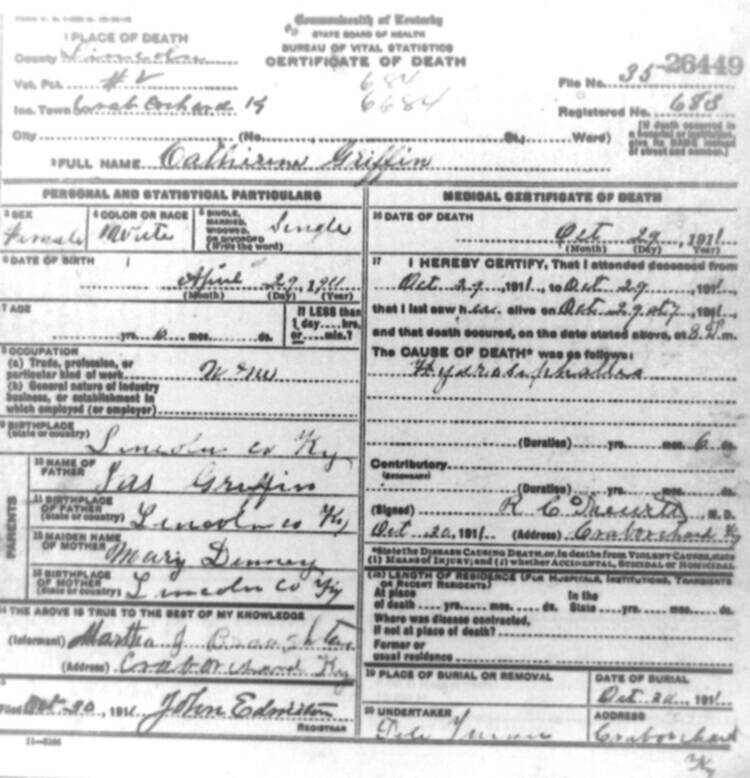 Commonwealth of Kentucky
STATE BOARD OF HEALTH
BUREAU OF VITAL STATISTICS
CERTIFICATE OF DEATH
1 PLACE OF DEATH
County Lincoln
Vot. Pct. #2
Inc. Town Crab Orchard Ky
City (No. St.; Ward)
684
6684
File No. 35-26449
Registered No. 688
[If death occurred in a hospital or institution, give its NAME instead of street and number.]
2 FULL NAME Catherine Griffin
PERSONAL AND STATISTICAL PARTICULARS
3 SEX
Female
4 COLOR OR RACE
White
5 SINGLE, MARRIED, WIDOWED, OR DIVORCED (Write the word)
Single
6 DATE OF BIRTH
April 29, 1911
(Month) (Day) (Year)
7 AGE
yrs. 6 mos. ds.
If LESS than 1 day....hrs. or....min.?
8 OCCUPATION
(a) Trade, profession, or particular kind of work
(b) General nature of industry
business, or establishment in
which employed (or employer)
9 BIRTHPLACE
(State or country)
Lincoln co Ky
PARENTS
10 NAME OF FATHER
Jas Griffin
11 BIRTHPLACE OF FATHER
(State or country)
Lincoln co Ky
12 MAIDEN NAME OF MOTHER
Mary Denney
13 BIRTHPLACE OF MOTHER
(State or country)
Lincoln co Ky
14 THE ABOVE IS TRUE TO THE BEST OF MY KNOWLEDGE
(Informant) Martha J
(Address) Craborchard Ky
15
Filed Oct 1911 John Edmiston
REGISTRAR
MEDICAL CERTIFICATE OF DEATH
16 DATE OF DEATH
Oct 29, 1911
(Month) (Day) (Year)
17 I HEREBY CERTIFY, That I attended deceased from
Oct 29, 1911, to Oct 29, 1911,
that I last saw h alive on Oct 29, 1911,
and that death occured, on the date stated above, at 8 m.
The CAUSE OF DEATH* was as follows:
(Duration) yrs. mos. 6 ds.
Contributory
(SECONDARY)
(Duration) yrs. mos. ds.
(Signed) R C M. D.
Oct 1911 (Address) Craborchard Ky
*State the DISEASE CAUSING DEATH, or, in deaths from VIOLENT CAUSES, state
(1) MEANS OF INJURY; and (2) whether ACCIDENTAL, SUICIDAL or HOMICIDAL
(18) LENGTH OF RESIDENCE (FOR HOSPITALS, INSTITUTIONS, TRANSIENTS OR RECENT RESIDENTS)
At place of death yrs. mos. ds. In the State yrs. mos. ds.
Where was disease contracted,
If not at place of death?
Former or
usual residence
19 PLACE OF BURIAL OR REMOVAL
DATE OF BURIAL
Oct 1911
20 UNDERTAKER
ADDRESS
Craborchard
Ky